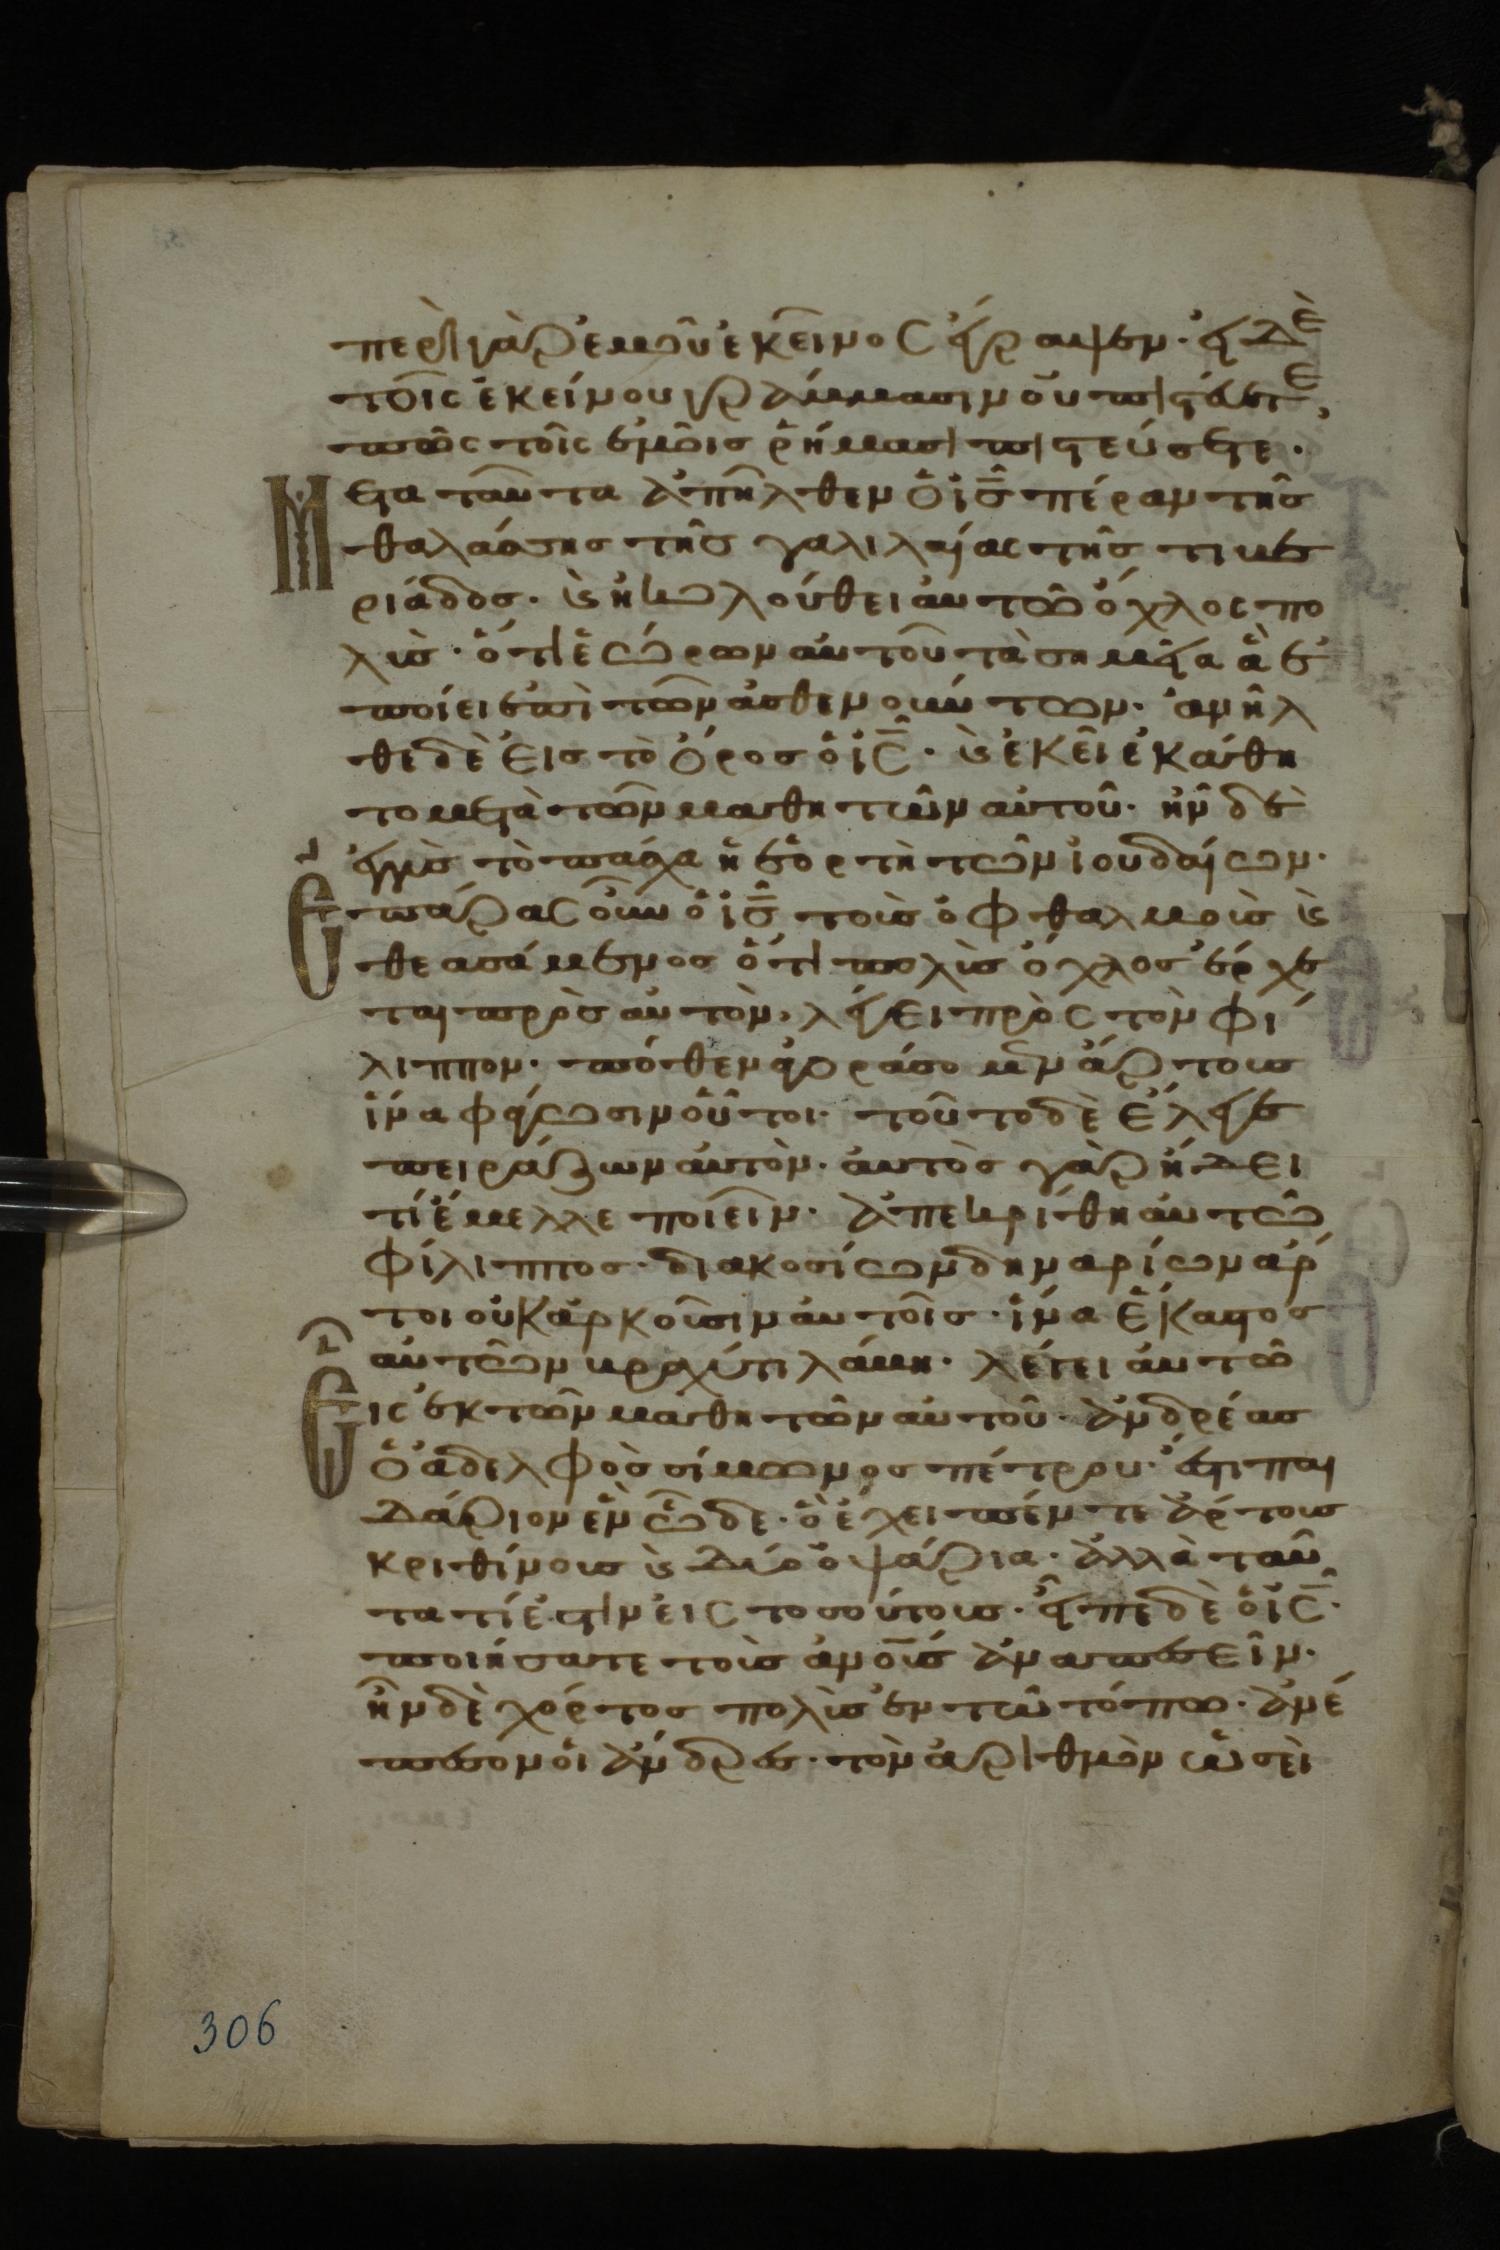 περὶ γὰρ ἐμοῦ ἐκεῖνος ἔγραψεν· εἰ δὲ
τοῖς ἐκείνου γράμμασιν οὐ πιστεύετε,
πῶς τοῖς ἐμοῖς ῥήμασι πιστεύσετε·
Μετα ταῦτα ἀπῆλθεν ὁ ἰ̅ς̅ πέραν τῆς
θαλάσσης τῆς γαλιλαίας τῆς τιβε
ριάδος· κὶ ἠκολούθει αυτῶ ὄχλος πο
λὺς· ὅτι ἑώρων αὐτοῦ τὰ σημεῖα ἃ ἐ
ποίει ἐπὶ τῶν ἀσθενούντων· ἀνῆλ
θε δὲ εἰς τὸ ὄρος ὁ ἰ̅ς̅· κὶ ἐκεῖ ἐκάθη
το μετὰ τῶν μαθητῶν αὐτοῦ· ἦν δὲ
ἐγγὺς τὸ πάσχα ἡ ἑορτὴ τῶν ἰουδαίων·
Ἐπάρας οὖν ὁ ἰ̅ς̅ τοὺς ὀφθαλμοὺς κὶ
θεασάμενος ὅτι πολὺς ὄχλος ἔρχε
ται πρὸς αὐτὸν, λέγει πρὸς τὸν φί
λιππον· πόθεν ἀγοράσομεν ἄρτους
ἵνα φάγωσιν οὗτοι· τοῦτο δὲ ἔλεγε
πειράζων αὐτὸν· αὐτὸς γὰρ ἤδει
τί ἔμελλε ποιεῖν· ἀπεκρίθη αὐτῶ
φίλιππος· διακοσίων δηναρίων ἄρ
τοι οὐκ ἀρκοῦσιν αυτοῖς· ἵνα ἕκαστος
αὐτῶν βραχύ τι λάβη· λέγει αὐτῶ
Εἷς ἐκ τῶν μαθητῶν αὐτοῦ· ἀνδρέας
ὁ ἀδελφὸς σίμωνος πέτρου· ἔστι παι
δάριον ἓν ὧδε· ὃ ἔχει πέντε ἄρτους
κριθίνους κὶ δύο ὀψάρια· ἀλλὰ ταῦ
τα τί ἐστιν εἰς τοσούτους· εἶπε δὲ ὁ ἰ̅ς̅·
ποιήσατε τοὺς ἀνοῦς ἀναπεσεῖν·
ἦν δὲ χόρτος πολὺς ἐν τῶ τόπω· ἀνέ
πεσον οἱ ἄνδρες· τὸν ἀριθμὸν ὡσεὶ
306